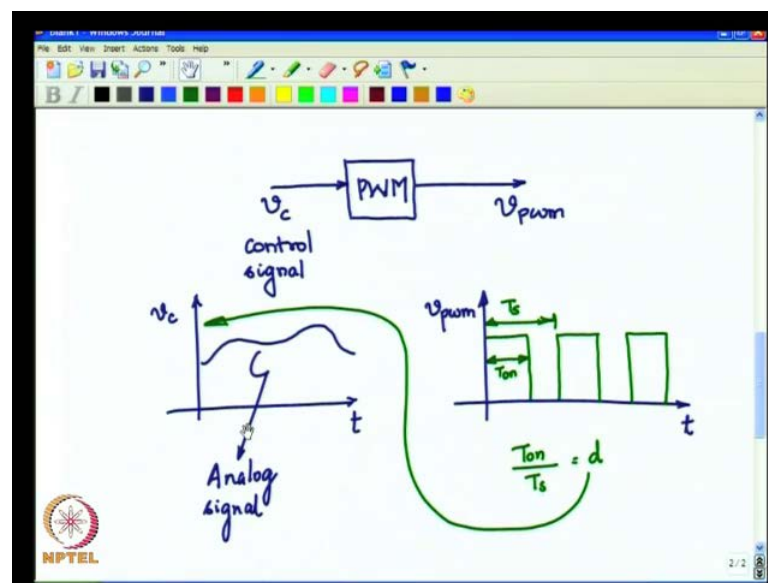 Blank1 - Windows Journal
File Edit View Insert Actions Tools Help
B I
PWM
v_c
v_pwm
control
signal
v_c
t
Analog
signal
v_pwm
Ts
Ton
t
Ton/Ts = d
NPTEL
2/2